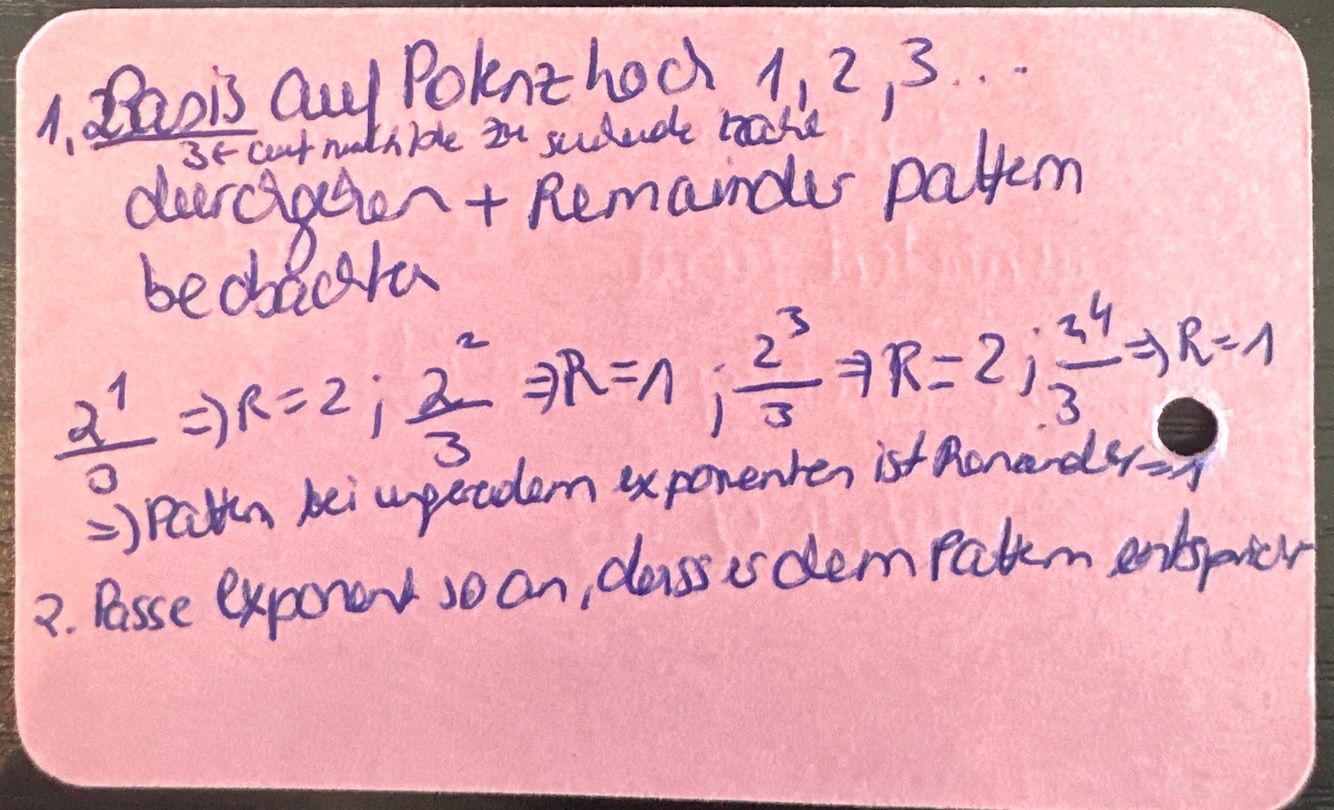 1, Basis auf Potenz hoch 1, 2, 3 ...
3 ← auf zu suchende
durchgehen + Remainder pattern
beobachten
2^1/3 => R = 2 ; 2^2/3 => R = 1 ; 2^3/3 => R = 2 ; 2^4/3 => R = 1
=> Pattern bei ungeradem exponenten ist Remainder = 1
2. Passe exponent so an, dass er dem Pattern entspricht